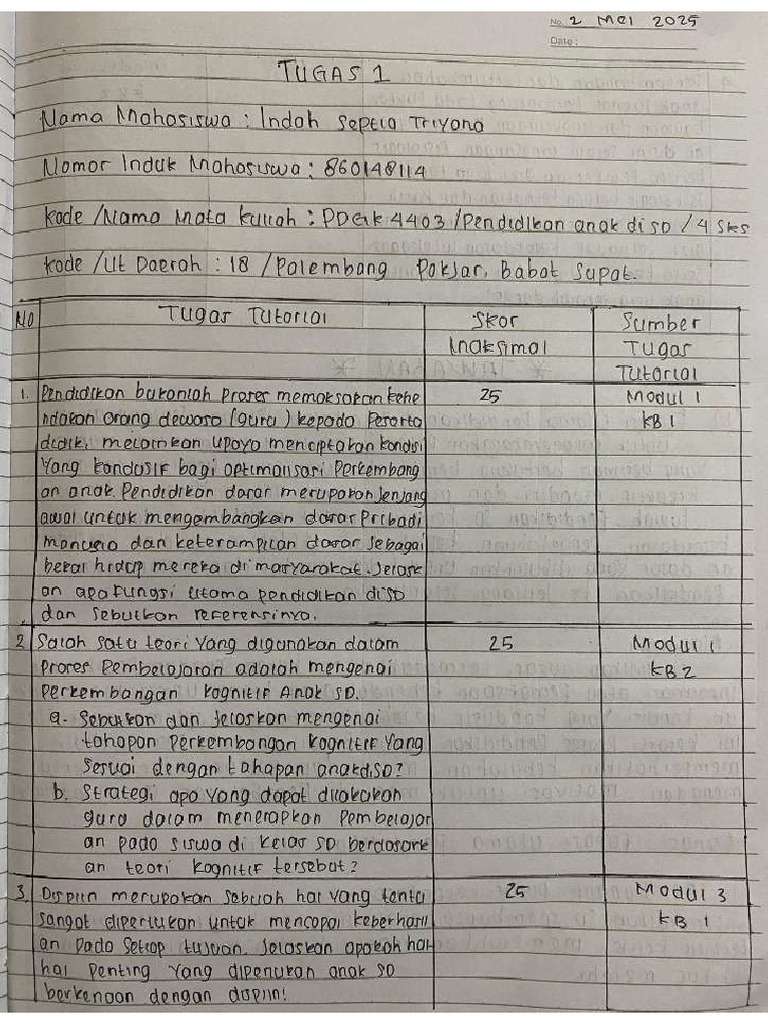 No. 2 Mei 2025
Date:
TUGAS 1
Nama Mahasiswa : Indah Septia Triyana
Nomor Induk Mahasiswa : 860148114
Kode /Nama Mata kuliah : PDGK 4403 /Pendidikan anak di SD / 4 SKS
Kode /Ut Daerah : 18 / Palembang Pokjar, Babat Supat.
No Tugas Tutorial Skor Sumber
Maksimal Tugas
Tutorial
1. Pendidikan bukanlah Proses memaksakan kehe 25 Modul 1
ndakan orang dewasa (guru) kepada Peserta KB 1
didik, melainkan upaya menciptakan kondisi
Yang kondusif bagi optimalisasi Perkembang
an anak. Pendidikan dasar merupakan Jenjang
awal untuk mengembangkan dasar Pribadi
manusia dan keterampilan dasar sebagai
bekal hidup mereka di masyarakat. Jelask
an apa fungsi utama pendidikan di SD
dan sebutkan referensinya.
2. Salah satu teori Yang digunakan dalam 25 Modul 1
Proses Pembelajaran adalah mengenai KB 2
Perkembangan kognitif Anak SD.
a. Sebutkan dan Jelaskan mengenai
tahapan Perkembangan kognitif Yang
sesuai dengan tahapan anak di SD?
b. Strategi apa Yang dapat dilakukan
guru dalam menerapkan Pembelajar
an pada siswa di kelas SD berdasark
an teori kognitif tersebut?
3. Disiplin merupakan sebuah hal Yang tentu 25 Modul 3
sangat diperlukan untuk mencapai keberhasil KB 1
an Pada Setiap tujuan. Jelaskan apakah hal-
hal Penting Yang diperlukan anak SD
berkenaan dengan disiplin!